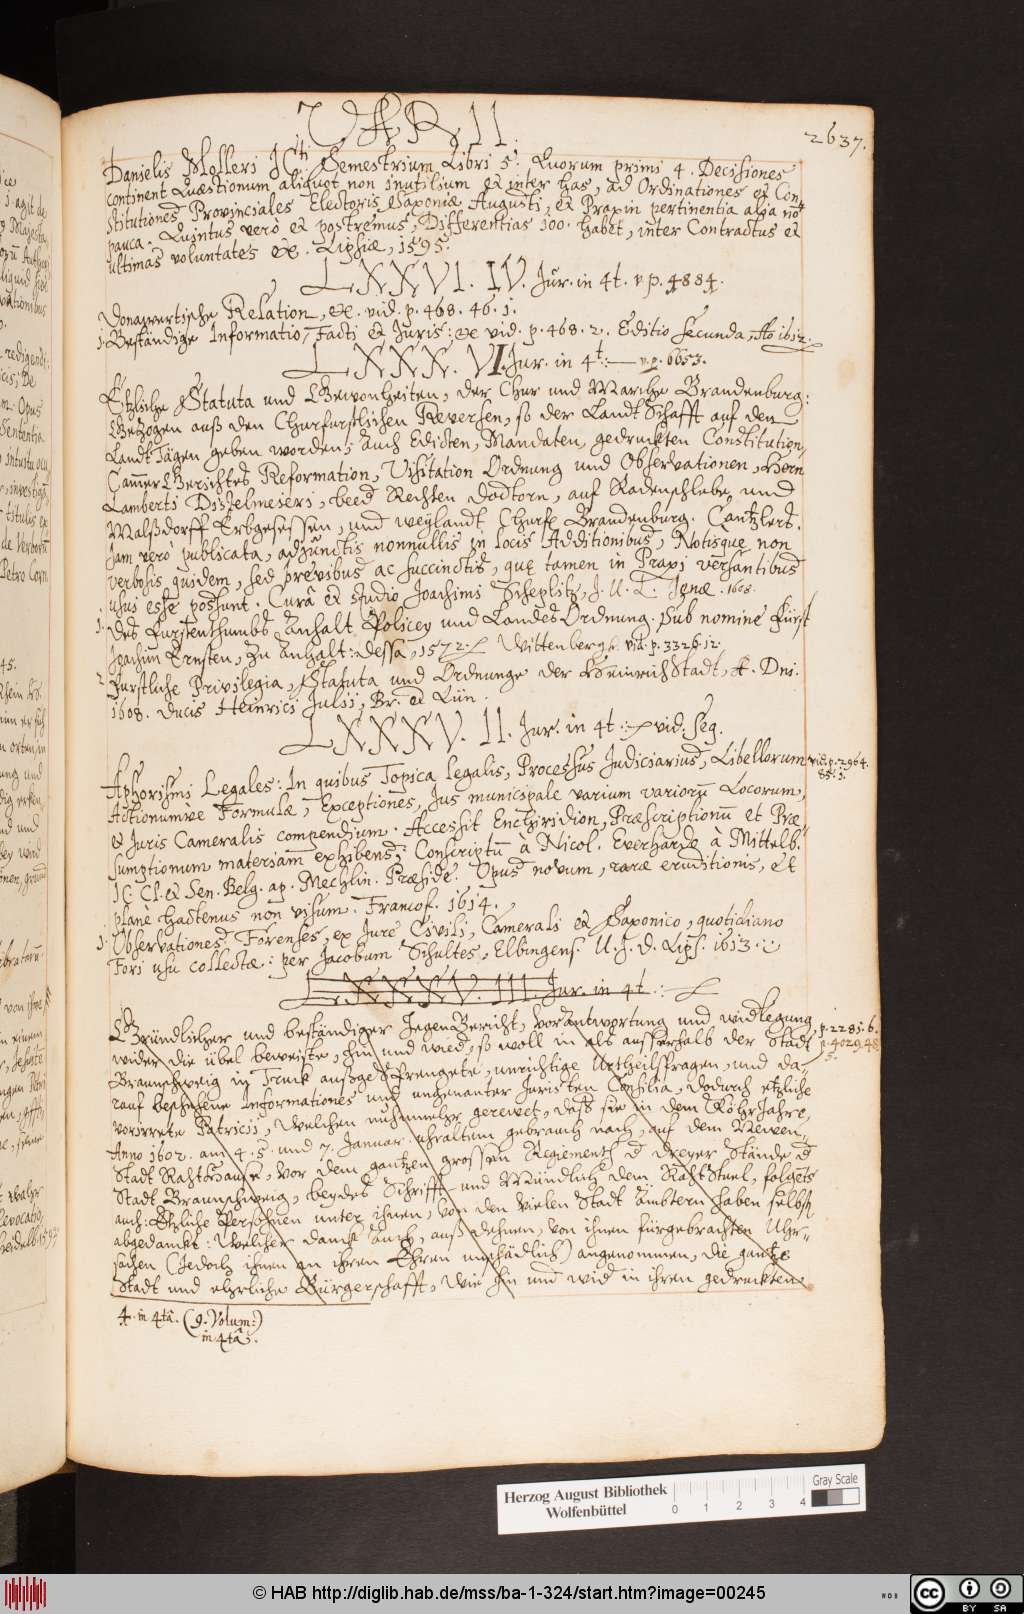 VAR II.
2637.
Danielis Molleri JCti Semestrium Libri 5. Quorum primi 4. Decisiones
continent Quæstionum aliquot non inutilium et inter has, ad Ordinationes et Con-
stitutiones Provinciales Electoris Saxoniæ Augusti, et Praxin pertinentia alia nō
pauca. Quintus verò et postremus, Differentias 100. habet, inter Contractus et
ultimas voluntates &c. Lipsiæ, 1595.
LXXVI. IV. Jur. in 4t. v p. 4884.
Donawertische Relation, &c. vid. p. 468. 46. 1.
1. Beständige Informatio, Facti & Juris: &c vid. p. 468. 2. Editio secunda, Ao 1612.
LXXX. VI. Jur. in 4t. v. p. 6653.
Etzliche Statuta und Gewonheiten, der Chur und Marche Brandenburg:
Gezogen auß den Churfürstlichen Reversen, so der LandtSchafft auf den
LandtTägen geben worden; Auch Edicten, Mandaten, gedruckten Constitution,
CammerGerichtes Reformation, Visitation Ordnung und Observationen, Hern
Lamberti Distelmeieri, beed Rechten Doctorn, auf Radensleben und
Malßdorff Erbgesessen, und weylandt Churf. Brandenburg. Cantzlers.
Jam verò publicata, adjunctis nonnullis in locis Additionibus, Notisque non
verbosis quidem, sed brevibus ac succinctis, quę tamen in Praxi versantibus
usui esse possunt. Curâ et studio Joachimi Scheplitz, J. U. L. Jenæ. 1608.
1. Des Fürstenthumbs Anhalt Policey und LandesOrdnung. Sub nomine Fürst
Joachim Ernsten, zu Anhalt: Dessa, 1572. Wittenberg. vid. p. 3326. 12.
2. Fürstliche Privilegia, Statuta und Ordnunge der HeinrichStadt, A. Dni.
1608. Ducis Heinrici Julii, Br. et Lün.
LXXXV. II. Jur. in 4t. vid. seq.
Aphorismi Legales: In quibus Topica legalis, Processus Judiciarius, Libellorum
vid. p. 2964.
85. 1.
Actionumve Formulæ, Exceptiones, Jus municipale varium variorū Locorum,
& Juris Cameralis compendium. Accessit Enchiridion, Præscriptionū et Præ-
sumptionum materiam exhibens; Conscriptū à Nicol. Everhardo à Mittelb.
JC. Cl. & Sen. Belg. ap. Mechlin. Præside. Opus novum, raræ eruditionis, et
planè hactenus non visum. Francof. 1614.
1. Observationes Forenses, ex Jure Civili, Camerali et Saxonico, quotidiano
Fori usu collectæ: per Jacobum Schultes, Elbingens. U. J. D. Lips. 1613.
LXXXV. III. Jur. in 4t.
Gründlicher und beständiger GegenBericht, Verantwortung und widlegung,
p. 2281. 6.
p. 4029. 48.
5.
wider die übel beweiste, hin und wied, so woll in als ausserhalb der Stadt
Braunschweig in Truck außgesprengete, unrichtige Urtheilsfragen, und da-
rauf beschehene Informationes und ungenanter Juristen Consilia, dodurch etzliche
verirrete Patricii, welchen nuhmmehr gerewet, daß sie in dem Jahre,
Anno 1602. am 4. 5. und 7. Januar. ehraltem gebrauch nach, auf dem Newen-
Stadt RahtHause, vor dem gantzen grossen Regiements d dreyer Stände d
Stadt Braunschweig, beydes Schrifft- und Mündlich dem RahtStuel, folgets
auch: Etzliche Persohnen unter ihnen, von den vielen Stadt Ämbtern haben selbst
abgedanckt: Welcher danck auch, auß dehnen, von ihnen fürgebrachten Uhr-
sachen (Jedoch ihnen an ihren Ehren unschädlich) angenommen, die gantze
Stadt und ehrliche Bürgerschafft, wie hin und wid in ihren gedruckten
4. in 4tâ. (9. Volum:)
in 4tâ.
Herzog August Bibliothek
Wolfenbüttel
0 1 2 3 4
Gray Scale
© HAB http://diglib.hab.de/mss/ba-1-324/start.htm?image=00245
cc BY SA